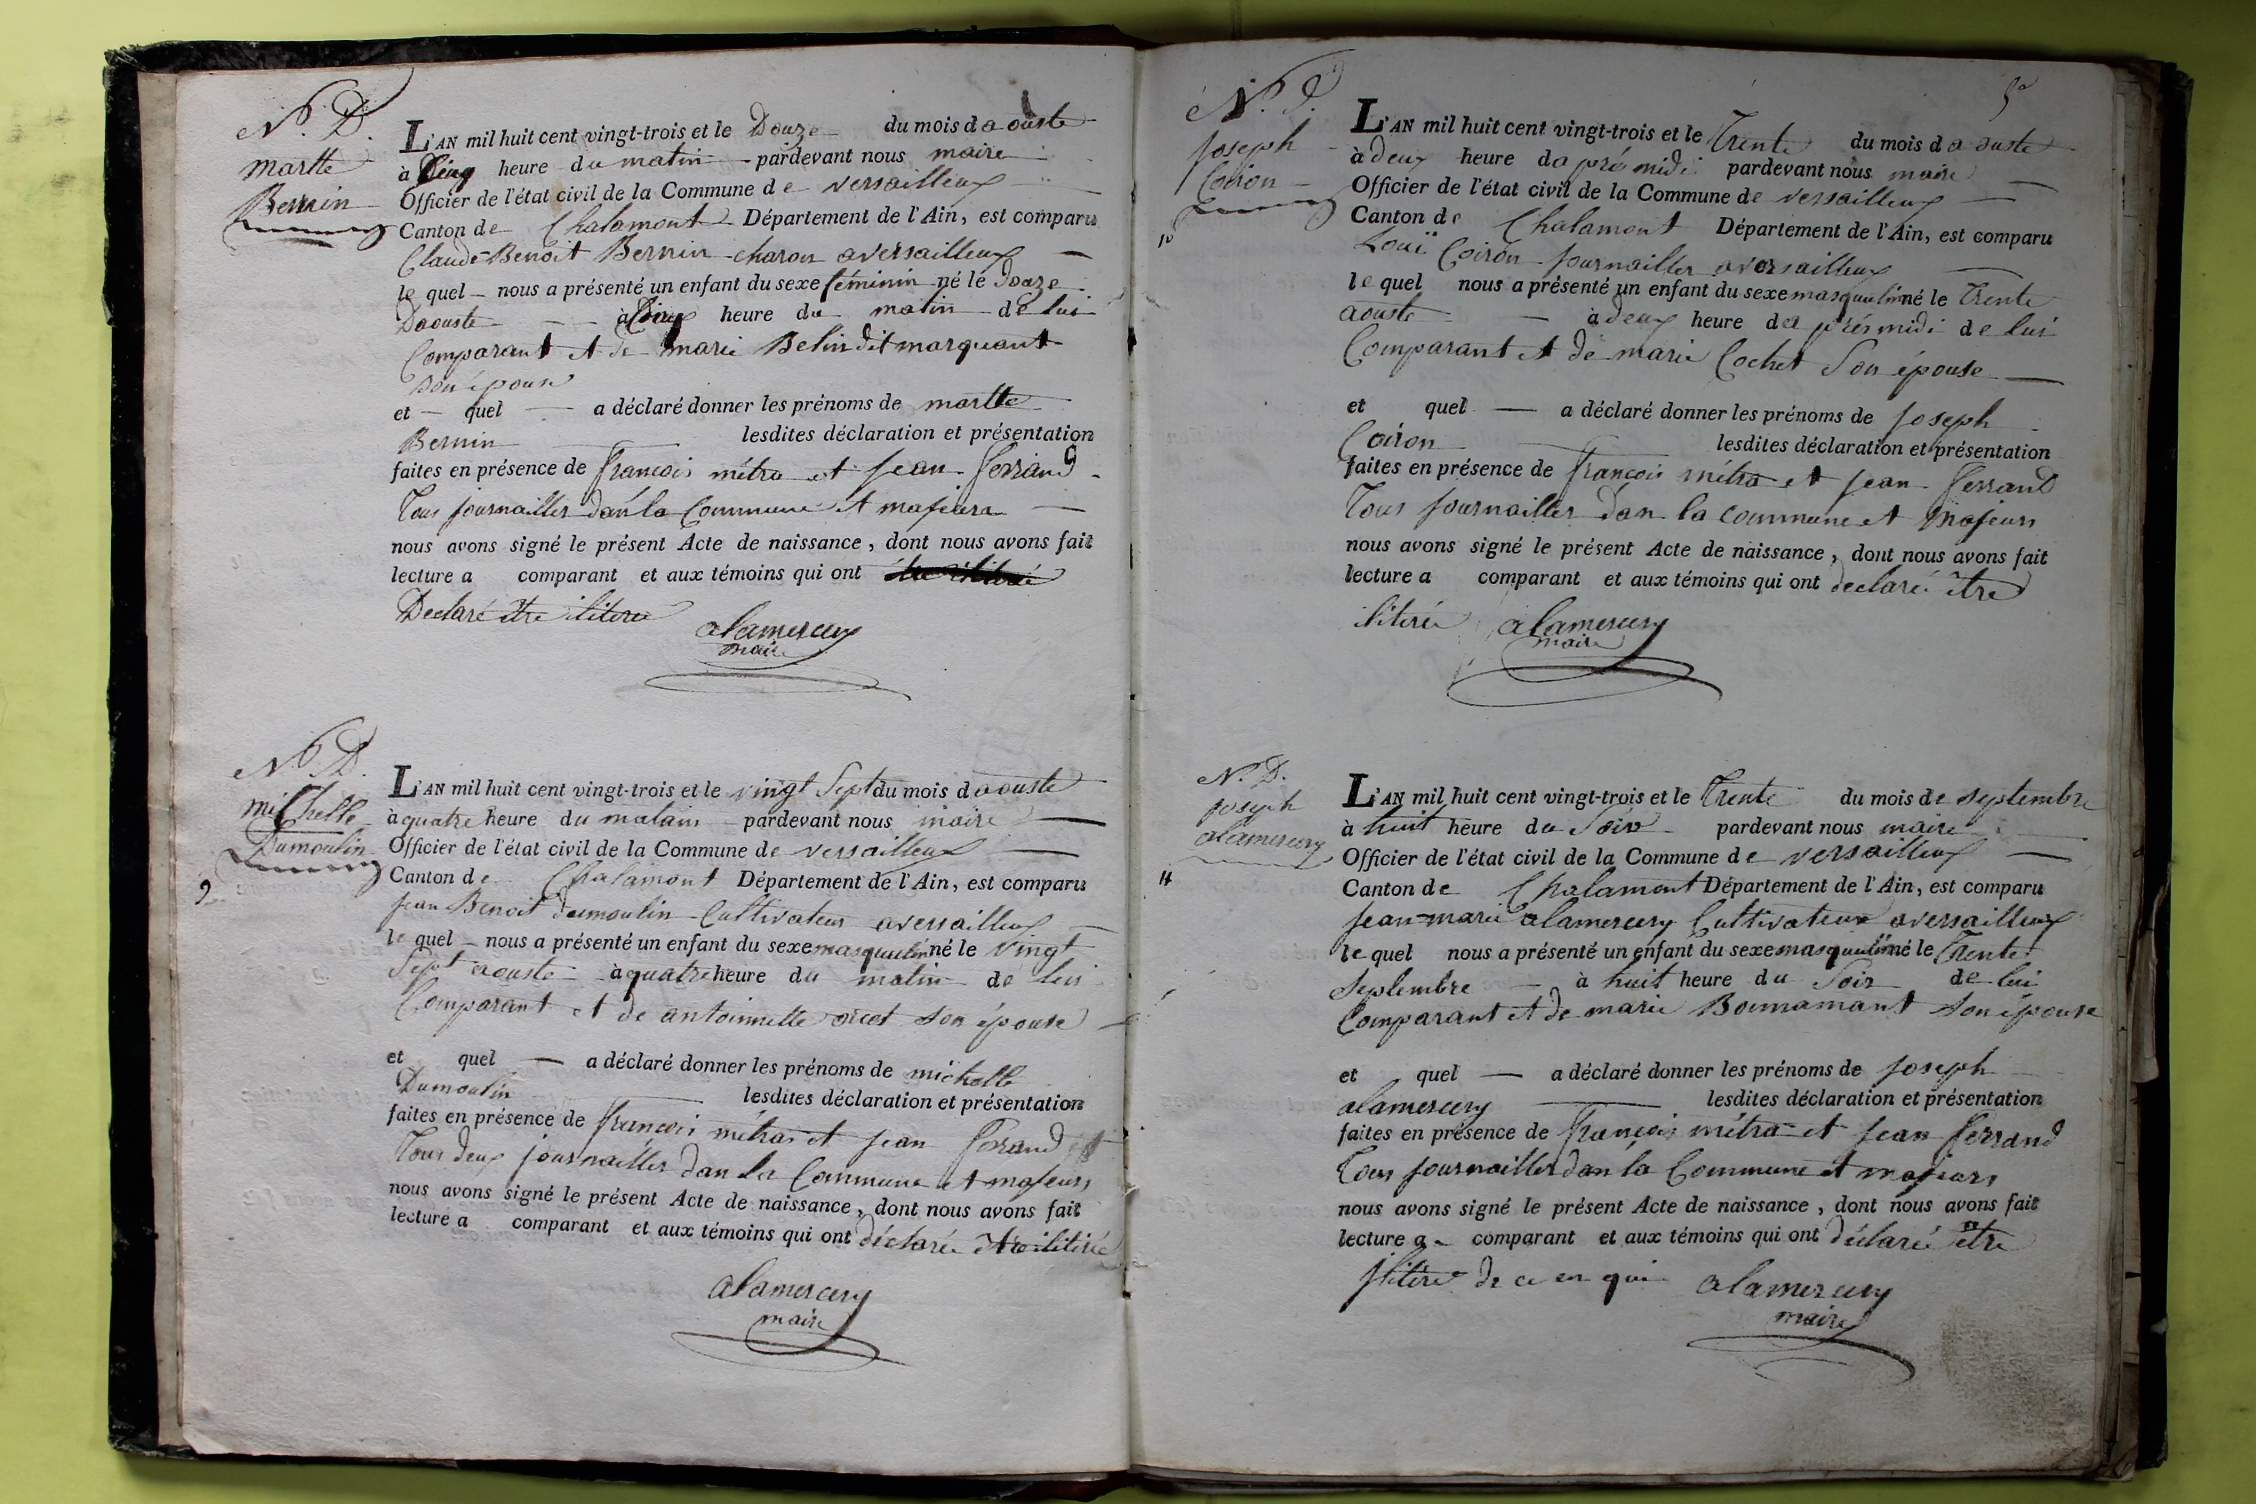 N. D.
martte
Bernin
L'AN mil huit cent vingt-trois et le Douze du mois d aouste
à Cinq heure du matin pardevant nous maire
Officier de l'état civil de la Commune de versailleux
Canton de Chalamont Département de l'Ain, est comparu
Claude Benoit Bernin charon aversailleux
le quel nous a présenté un enfant du sexe féminin né le Douze
Daouste à Cinq heure du matin de lui
Comparant et de marie Belin dit marquant
son épouse
et quel a déclaré donner les prénoms de martte
Bernin lesdites déclaration et présentation
faites en présence de francois métra et jean ferrand
Tous journailler dan la Commune et majeurs
nous avons signé le présent Acte de naissance, dont nous avons fait
lecture a comparant et aux témoins qui ont
Declaré être iliterée
alamercery
maire
N. D.
michelle
Dumoulin
9
L'AN mil huit cent vingt-trois et le vingt Sept du mois d aouste
à quatre heure du matain pardevant nous maire
Officier de l'état civil de la Commune de versailleux
Canton de Chalamont Département de l'Ain, est comparu
jean Benoit dumoulin Cultivateur aversailleux
le quel nous a présenté un enfant du sexe masquulin né le vingt
Sept aouste à quatre heure du matin de lui
Comparant et de antoinnette son épouse
et quel a déclaré donner les prénoms de michelle
Dumoulin lesdites déclaration et présentation
faites en présence de françois métra et jean ferrand
Tous deux journailler dan la Commune et majeurs
nous avons signé le présent Acte de naissance, dont nous avons fait
lecture a comparant et aux témoins qui ont déclarée être ilitirée
alamercery
maire
5
N. D.
joseph
Coiron
10
L'AN mil huit cent vingt-trois et le Trente du mois d aouste
à deux heure da prés midi pardevant nous maire
Officier de l'état civil de la Commune de versailleux
Canton de Chalamont Département de l'Ain, est comparu
Louï Coiron journailler aversailleux
le quel nous a présenté un enfant du sexe masquulin né le Trente
aouste à deux heure da prés midi de lui
Comparant et de marie Cochet son épouse
et quel a déclaré donner les prénoms de joseph
Coiron lesdites déclaration et présentation
faites en présence de françois métra et jean ferrand
Tous journailler dan la commune et majeurs
nous avons signé le présent Acte de naissance, dont nous avons fait
lecture a comparant et aux témoins qui ont declaré être
ilitirée alamercery
maire
N. D.
joseph
alamercery
11
L'AN mil huit cent vingt-trois et le Trente du mois de septembre
à huit heure du Soir pardevant nous maire
Officier de l'état civil de la Commune de versailleux
Canton de Chalamont Département de l'Ain, est comparu
jean-marie alamercery Cultivateur aversailleux
le quel nous a présenté un enfant du sexe masquulin né le Trente
septembre à huit heure du Soir de lui
Comparant et de marie Bonnamant son épouse
et quel a déclaré donner les prénoms de joseph
alamercery lesdites déclaration et présentation
faites en présence de françois métra et jean ferrand
Tous journailler dan la Commune et majeurs
nous avons signé le présent Acte de naissance, dont nous avons fait
lecture a comparant et aux témoins qui ont déclaré être
ilitére de ce en qui alamercery
maire